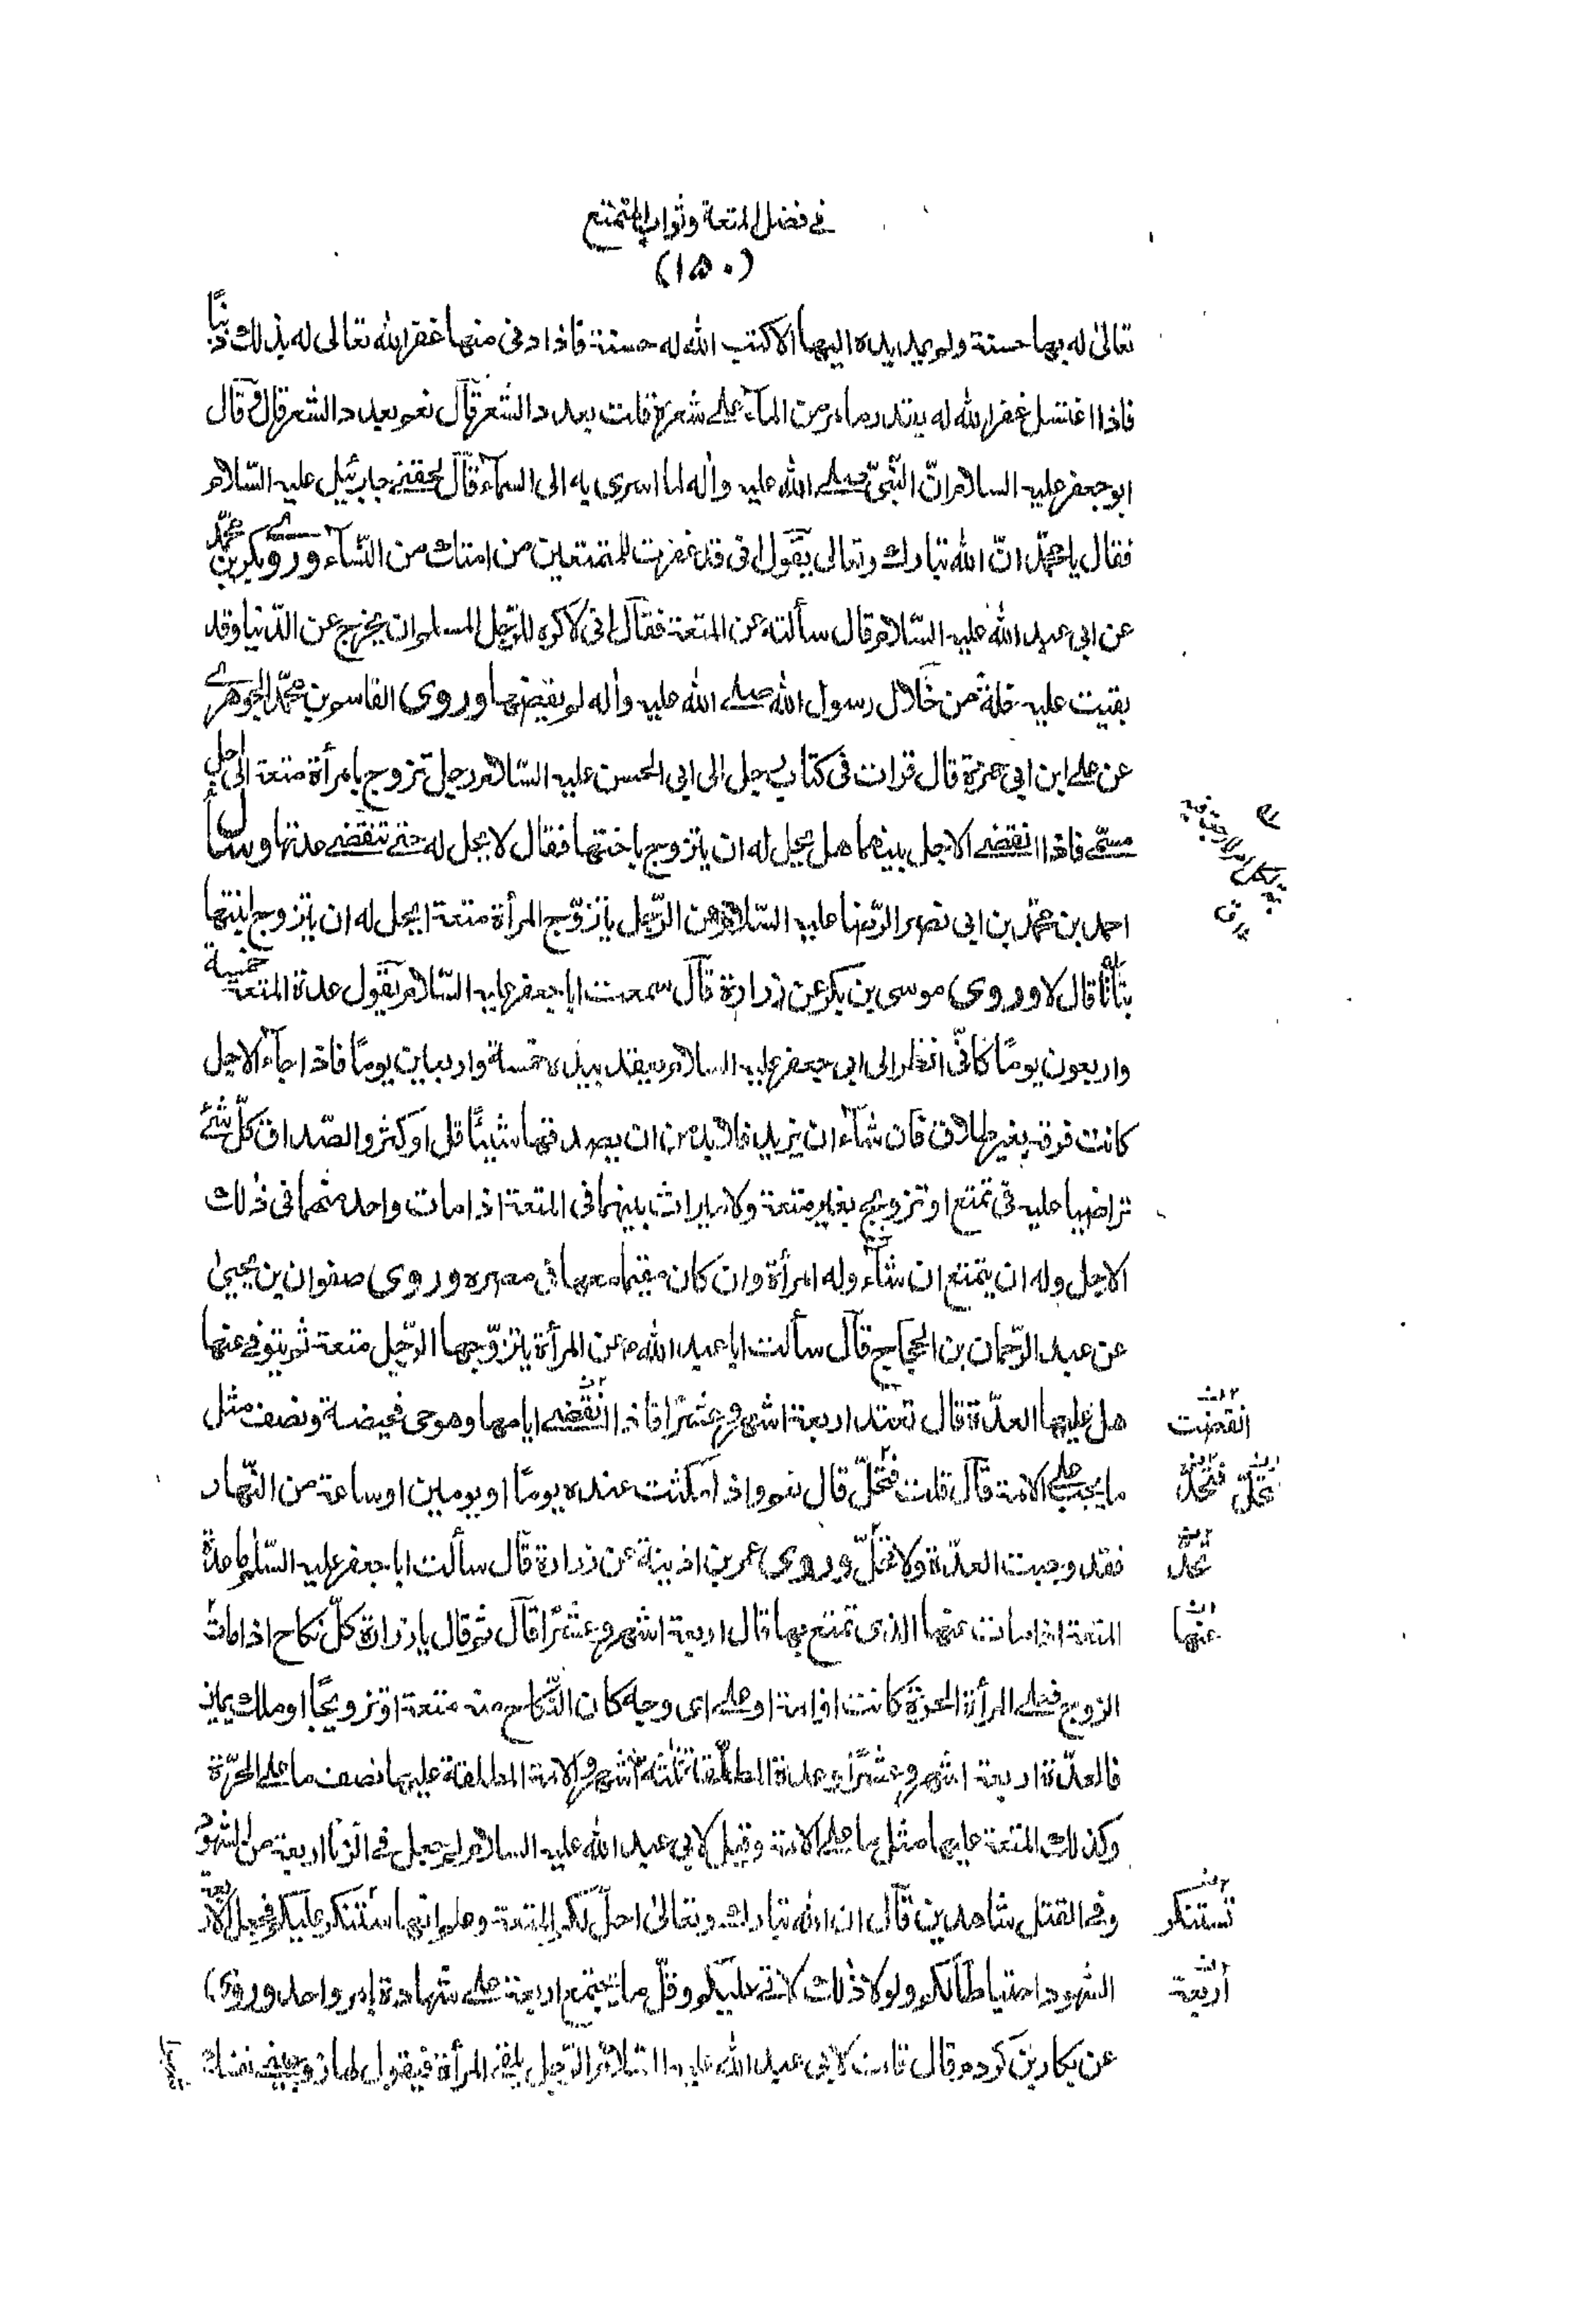 في فضل المتعة وثواب المتمتع
(١٥٠)
تعالى له بها حسنة ولم يمد يده اليها الا كتب الله له حسنة فاذا دنى منها غفر الله تعالى له بذلك ذنبًا
فاذا اغتسل غفر الله له بقدر ما مر من المآء على شعره قلت بعدد الشعر قال نعم بعدد الشعر قال و قال
ابو جعفر عليه السلام انّ النّبىّ صلى الله عليه واٰله لما اسرى به الى السمآء قال لحقنى جبرئيل عليه السّلام
فقال يا محمّد انّ الله تبارك وتعالى يقول انى قد غفرت للمتمتعين من امتك من النّسآء وروى بكر بن محمّد
عن ابى عبد الله عليه السّلام قال سألته عن المتعة فقال انى لاكره للرّجل المسلم ان يخرج عن الدّنيا وقد
بقيت عليه خلة من خلال رسول الله صلى الله عليه واٰله لم يقضها وروى القاسم بن محمّد الجوهرى
عن على ابن ابى حمزة قال قرات فى كتاب رجل الى ابى الحسن عليه السّلام رجل تزوج بامرأة متعة الى اجل
مسمّى فاذا انقضى الاجل بينهما هل يحل له ان يتزوج باختها فقال لا يحل له حتى تنقضى عدتها وسأل
احمد بن محمّد بن ابى نصر الرّضا عليه السّلام عن الرّجل يتزوّج المرأة متعة ايحل له ان يتزوج ابنتها
بتاتًا قال لا وروى موسى بن بكر عن زرارة قال سمعت ابا جعفر عليه السّلام يقول عدة المتعة خمسة
واربعون يومًا كانّى انظر الى ابى جعفر عليه السلام يعقد بيده خمسة واربعين يومًا فاذا جآء الاجل
كانت فرقة بغير طلاق فان شآء ان يزيد فلا بد من ان يصدقها شيئًا قل او كثر والصّداق كلّ شئ
تراضيا عليه فى تمتع او تزويج بغير متعة ولا ميراث بينهما فى المتعة اذا مات واحد منهما فى ذٰلك
الاجل وله ان يتمتع ان شآء وله امرأة وان كان مقيما معها فى مصره وروى صفوان بن يحيىٰ
عن عبد الرّحمان بن الحجاج قال سألت ابا عبد الله ع عن المرأة يتزوّجها الرّجل متعة ثم يتوفى عنها
هل عليها العدّة قال تعتد اربعة اشهر وعشرًا فاذا انقضى ايامها وهو حى فحيضة ونصف مثل
ما يجب على الامة قال قلت فتحلّ قال نعم واذا مكثت عنده يومًا او يومين او ساعة من النّهار
فقد وجبت العدّة ولا تحلّ وروى عمر بن اذينة عن زرارة قال سألت ابا جعفر عليه السّلم ما عدة
المتعة اذا مات عنها الذى تمتع بها قال اربعة اشهر وعشرًا قال ثم قال يا زرارة كلّ نكاح اذا مات
الزوج فعلى المرأة حرة كانت او امة او على اى وجه كان النّكاح منه متعة او تزويجًا او ملك يمين
فالعدّة اربعة اشهر وعشرًا وعدة المطلّقة ثلثة اشهر والامة المطلقة عليها نصف ما على الحرّة
وكذلك المتعة عليها مثل ما على الامة وقيل لابى عبد الله عليه السلام لم جعل فى الزنا اربعة من الشهود
وفى القتل شاهدين قال ان الله تبارك وتعالىٰ احلّ لكم المتعة وعلم انها ستنكر عليكم فجعل الاربعة
الشهود احتياطًا لكم ولو لا ذٰلك لاتى عليكم وقلّ ما يجتمع اربعة على شهادة بامر واحد وروى
عن بكار بن كردم قال قلت لابى عبد الله عليه السّلام الرّجل يلقى المرأة فيقول لها زوجينى نفسك
انقضت
تحلّ فتحلّ
تحل
عنها
تستنكر
اربعة